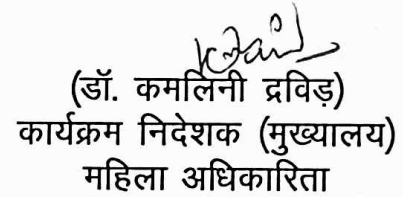 (डॉ. कमलिनी द्रविड़)
कार्यक्रम निदेशक (मुख्यालय)
महिला अधिकारिता